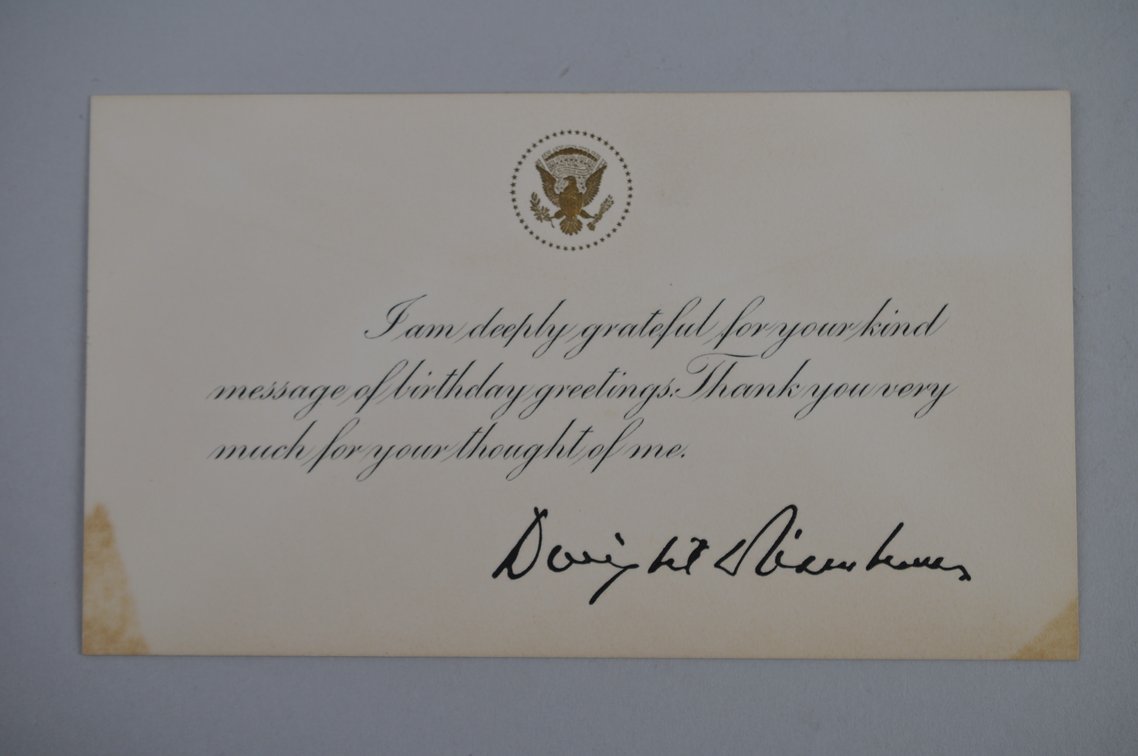 I am deeply grateful for your kind
message of birthday greetings. Thank you very
much for your thought of me.
Dwight D Eisenhower